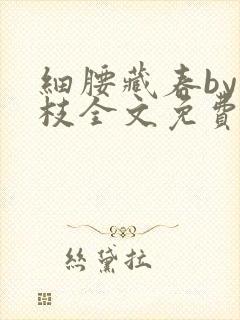 細腰藏春by
枝全文免費
絲黛拉